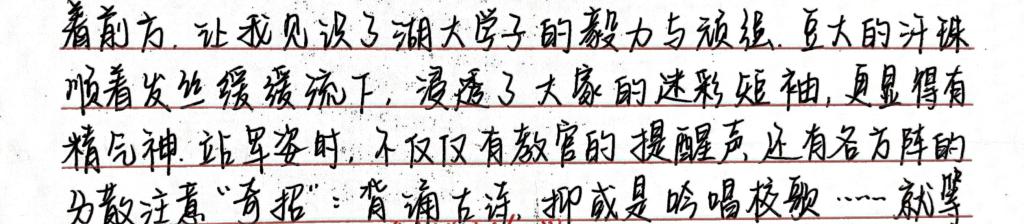 着前方.让我见识了湖大学子的毅力与顽强.豆大的汗珠
顺着发丝缓缓流下,浸透了大家的迷彩短袖,更显得有
精气神.站军姿时,不仅仅有教官的提醒声,还有各方阵的
分散注意“奇招”:背诵古诗,抑或是吟唱校歌……就单